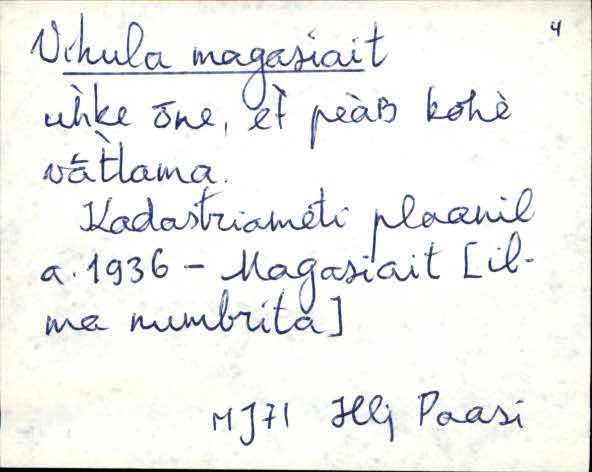 4
Vihula magasiait
uh̀ke ōne, et̀ pèàB kohè
vàt̀lama.
Kadastriameti plaanil
a. 1936 – Magasiait [il-
ma numbrita]
MJ71 Hlj Paasi